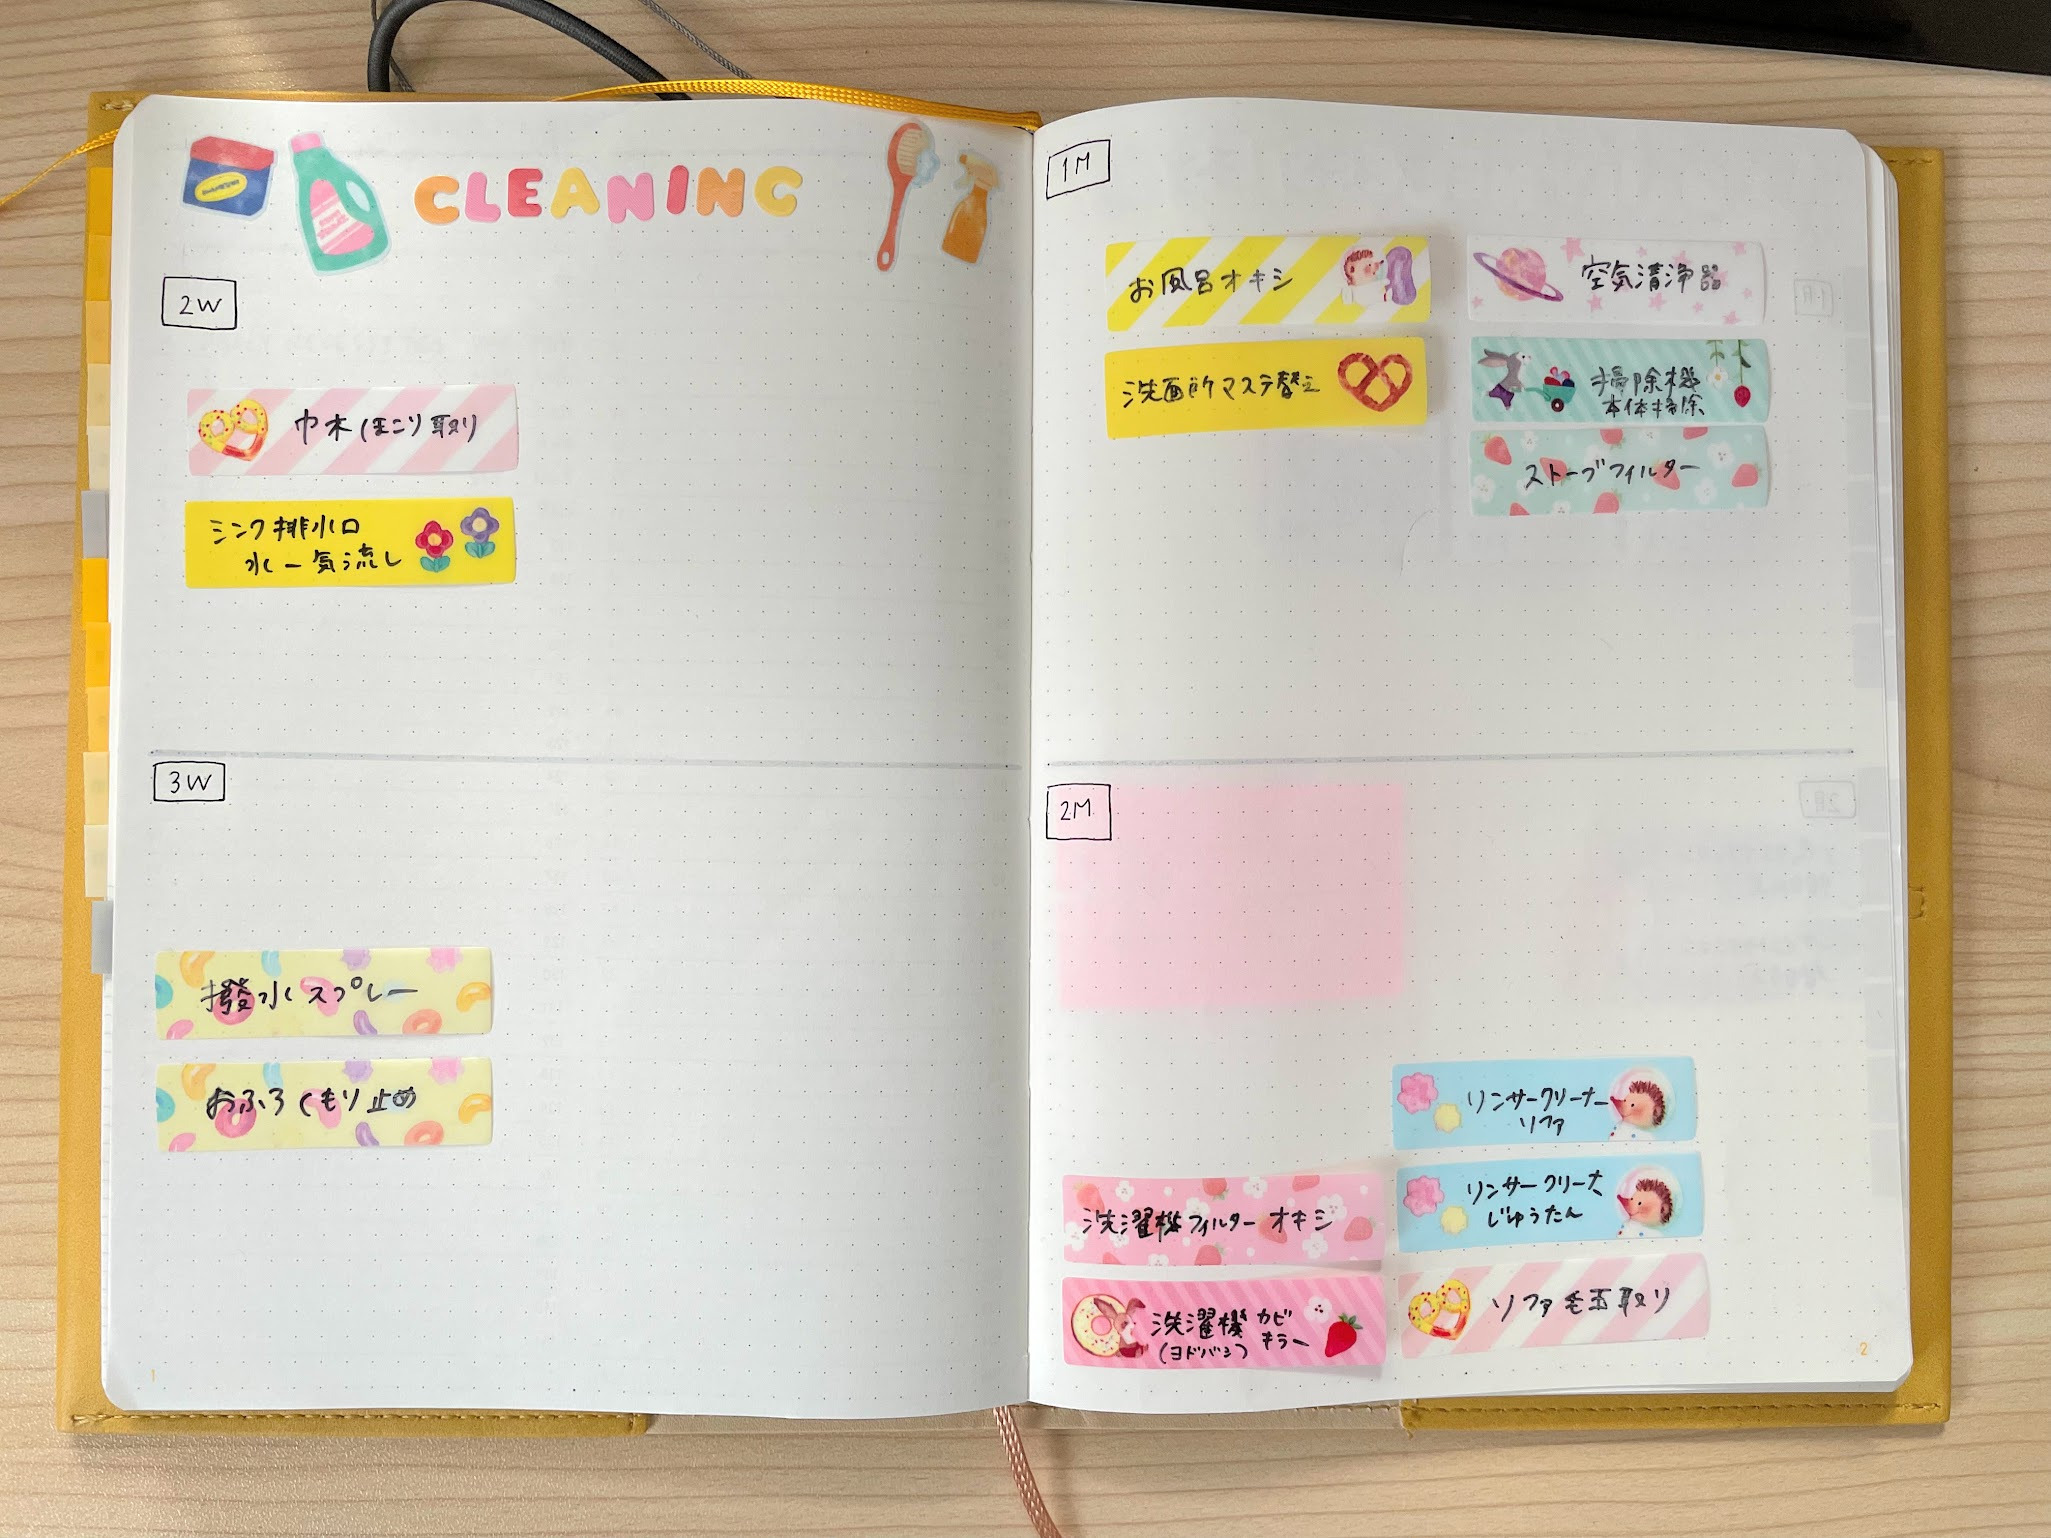 CLEANING
2W
巾木ほこり取り
シンク排水口
水一気流し
3W
撥水スプレー
おふろくもり止め
1
1M
お風呂オキシ
洗面所マステ替え
空気清浄器
掃除機
本体掃除
ストーブフィルター
2M
リンサークリーナー
ソファ
リンサークリーナ
じゅうたん
洗濯機フィルター オキシ
洗濯機 カビ
キラー
(ヨドバシ)
ソファ毛玉取り
2